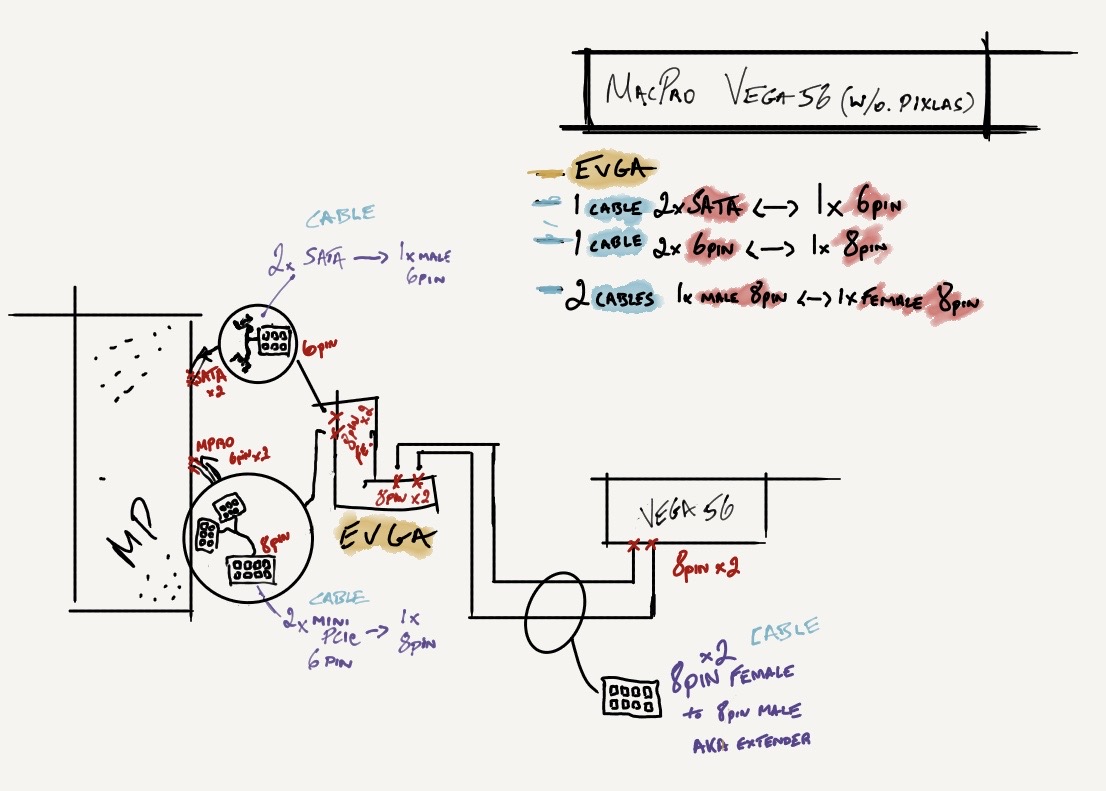 MACPRO VEGA 56 (W/O. PIXLAS)
— EVGA
— 1 CABLE 2x SATA <—> 1x 6PIN
— 1 CABLE 2x 6PIN <—> 1x 8PIN
— 2 CABLES 1x MALE 8PIN <—> 1x FEMALE 8PIN
CABLE
2x SATA —> 1x MALE
6PIN
6PIN
SATA
x2
MPRO
6PIN x2
8PIN x2
8PIN x2
EVGA
MP
8PIN
CABLE
2x MINI
PCIe
6 PIN
—> 1x
8PIN
VEGA 56
8PIN x2
CABLE
x2
8PIN FEMALE
to 8PIN MALE
AKA EXTENDER